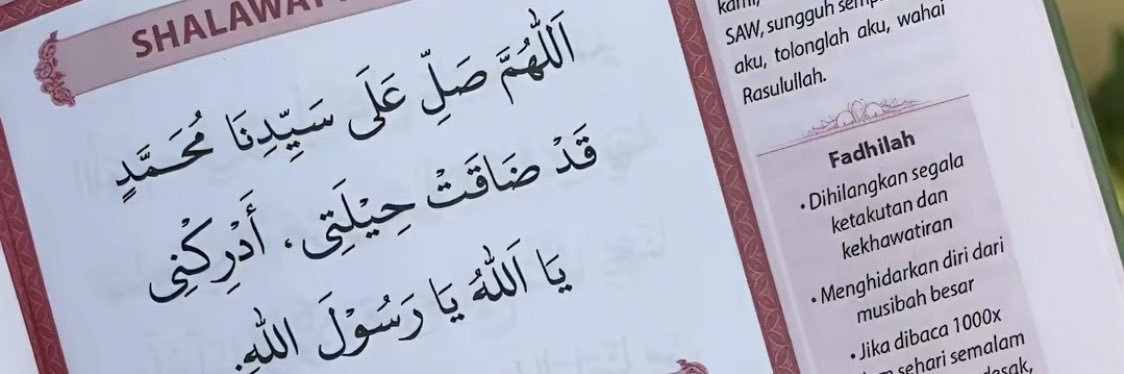 SHALAWAT
اَللّٰهُمَّ صَلِّ عَلَى سَيِّدِنَا مُحَمَّدٍ
قَدْ ضَاقَتْ حِيْلَتِى، أَدْرِكْنِى
يَا اَللهُ يَا رَسُوْلَ اللهِ.
kami,
SAW, sungguh
aku, tolonglah aku, wahai
Rasulullah.
Fadhilah
• Dihilangkan segala
ketakutan dan
kekhawatiran
• Menghidarkan diri dari
musibah besar
• Jika dibaca 1000x
sehari semalam